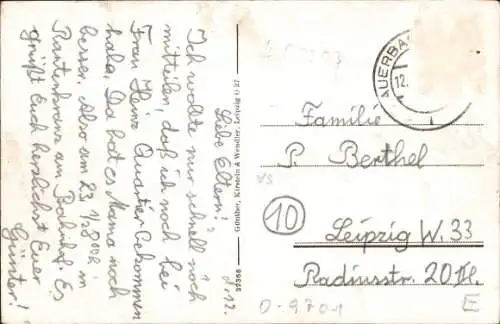 Liebe Eltern!
Ich wollte nur schnell noch
mitteilen, daß ich noch bei
Frau Heinz Quatier bekommen
habe. Da hat es Mama noch
besser. Also am 23. 1/2 8 00h in
Rautenkranz am Bahnhof. Es
grüßt Euch herzlichst Euer
Günter!
Günther, Kirstein & Wendler, Leipzig O 27
AUERBA
12.
Familie
P. Berthel
10
Leipzig W. 33
Radiusstr. 20 II.
0-9701